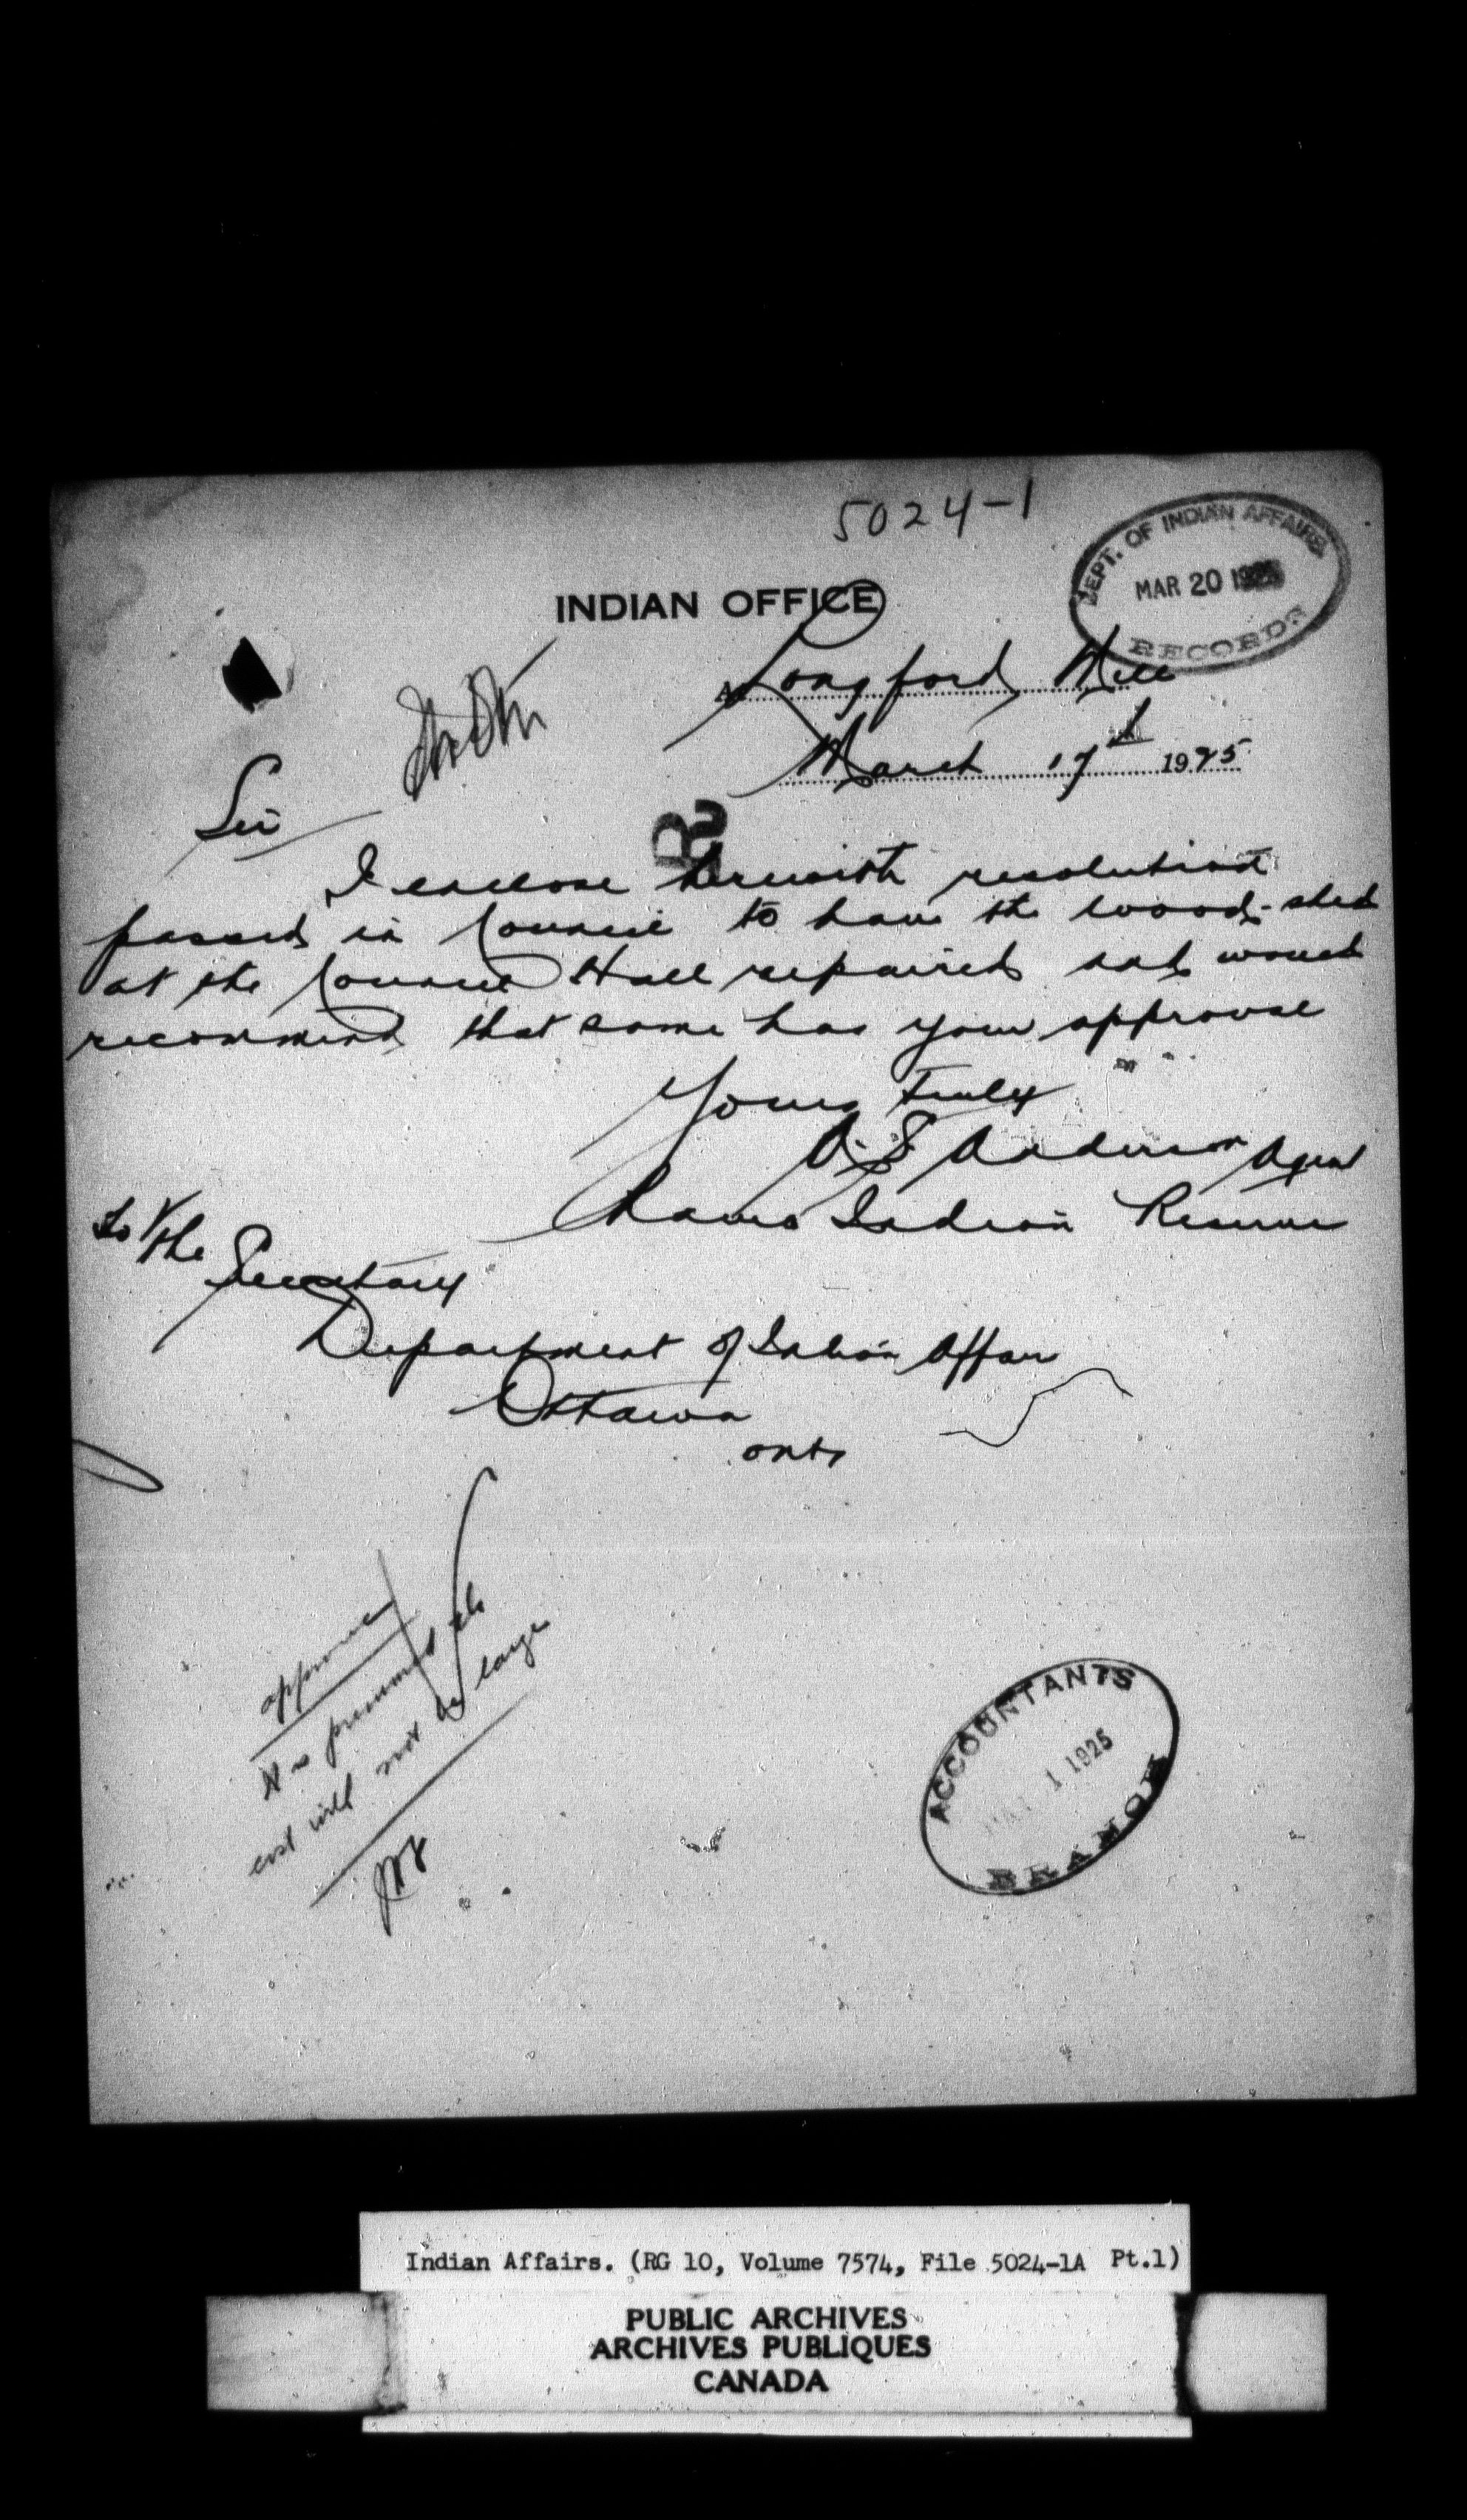 5024-1
DEPT. OF INDIAN AFFAIRS
MAR 20 1925
RECORDS
INDIAN OFFICE
At Longford Mill
March 17th 1925
Sir
R
I enclose herewith resolution
passed in Council to have the wood-shed
at the Council Hall repaired and would
recommend that same has your approval
Yours truly
A. S. Anderson Agent
Rama Indian Reserve
To the
Secretary
Department of Indian Affairs
Ottawa
Ont
approve
It is presumed the
cost will not be large
ACCOUNTANTS
1 1925
BRANCH
Indian Affairs. (RG 10, Volume 7574, File 5024-1A Pt.1)
PUBLIC ARCHIVES
ARCHIVES PUBLIQUES
CANADA